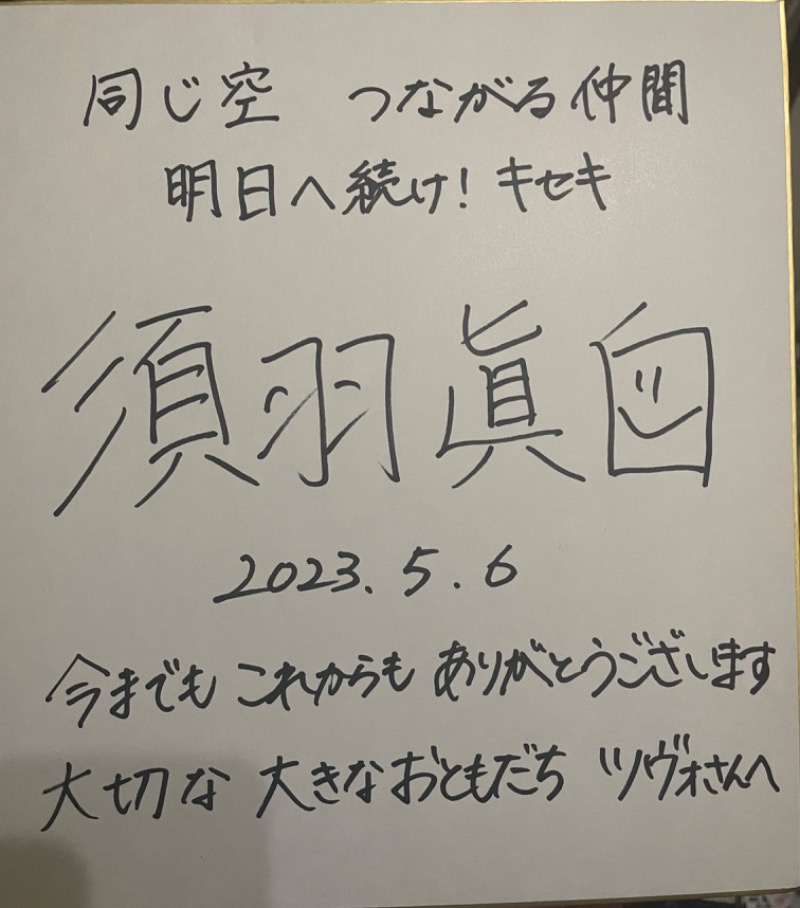 同じ空 つながる仲間
明日へ続け！キセキ
須羽眞白
2023.5.6
今までも これからも ありがとうございます
大切な 大きなおともだち ツヴォさんへ